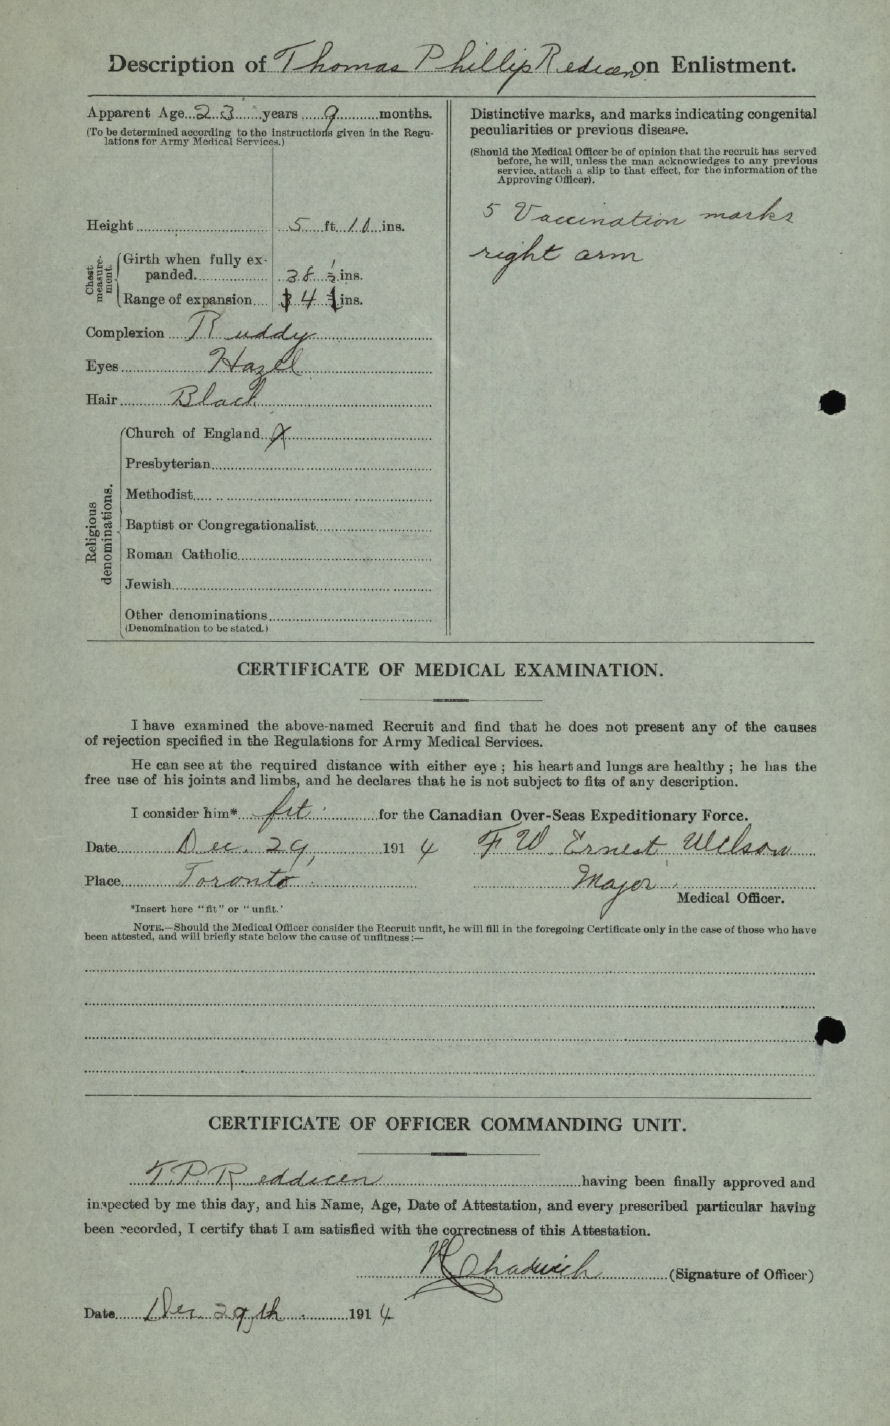 Description of Thomas Phillip Redicen on Enlistment.
Apparent Age 23 years 9 months.
(To be determined according to the instructions given in the Regu-
lations for Army Medical Services.)
Height 5 ft. 10 ins.
Chest measure-ment.
Girth when fully ex-
panded 38 ins.
Range of expansion 4 ins.
Complexion Ruddy
Eyes Hazel
Hair Black
Religious denominations.
Church of England X
Presbyterian
Methodist
Baptist or Congregationalist
Roman Catholic
Jewish
Other denominations
(Denomination to be stated.)
Distinctive marks, and marks indicating congenital
peculiarities or previous disease.
(Should the Medical Officer be of opinion that the recruit has served
before, he will, unless the man acknowledges to any previous
service, attach a slip to that effect, for the information of the
Approving Officer).
5 Vaccination marks
right arm
CERTIFICATE OF MEDICAL EXAMINATION.
I have examined the above-named Recruit and find that he does not present any of the causes
of rejection specified in the Regulations for Army Medical Services.
He can see at the required distance with either eye ; his heart and lungs are healthy ; he has the
free use of his joints and limbs, and he declares that he is not subject to fits of any description.
I consider him* fit for the Canadian Over-Seas Expeditionary Force.
Date Dec. 29, 1914 F W Ernest Wilson
Place Toronto Major
Medical Officer.
*Insert here "fit" or "unfit.'
NOTE.—Should the Medical Officer consider the Recruit unfit, he will fill in the foregoing Certificate only in the case of those who have
been attested, and will briefly state below the cause of unfitness :—
CERTIFICATE OF OFFICER COMMANDING UNIT.
T P Reddicen having been finally approved and
inspected by me this day, and his Name, Age, Date of Attestation, and every prescribed particular having
been recorded, I certify that I am satisfied with the correctness of this Attestation.
Chadwick (Signature of Officer)
Date Dec 29th 1914